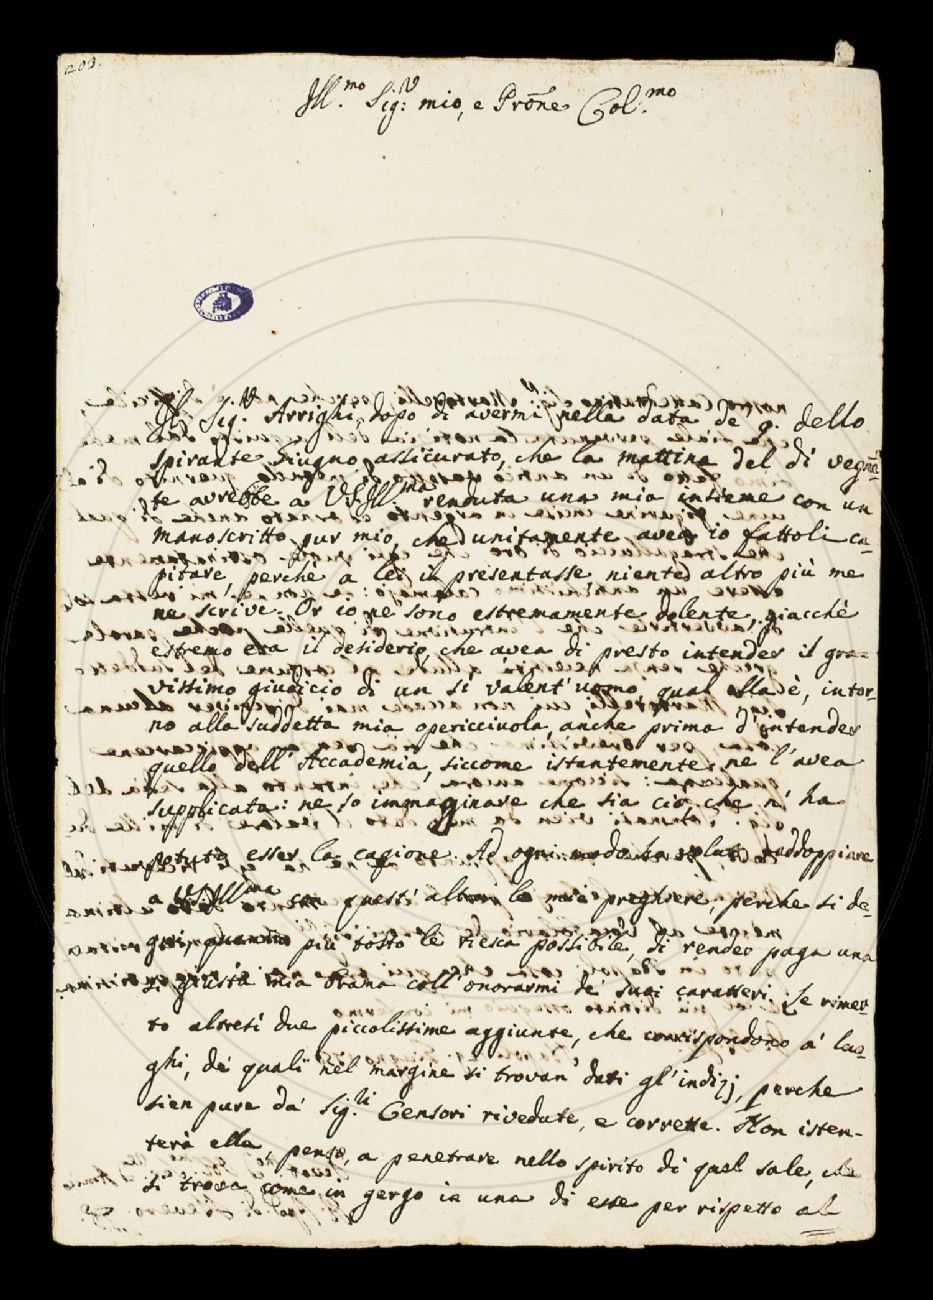 203.
Ill.mo Sig.r mio, e Prône Col.mo
Il Sig.r Arrighi, dopo di avermi nella data de' 9. dello
spirante Giugno assicurato, che la mattina del dì vegnē-
te avrebbe a VS.Ill.ma renduta una mia insieme con un
manoscritto pur mio, che unitamente avea io fattoli ca-
pitare, perche a lei il presentasse, niente altro più me
ne scrive. Or io ne sono estremamente dolente, giacchè
estremo era il desiderio, che avea di presto intender il gra-
vissimo giudicio di un sì valent'uomo, qual Ella è, intor-
no alla suddetta mia opericciuola, anche prima d'intender
quello dell'Accademia, siccome istantemente ne l'avea
supplicata: ne so immaginare che sia ciò, che n'ha
potuto esser la cagione. Ad ogni modo ho voluto raddoppiare
a VS.Ill.ma con questi altri le mie preghiere, perche si de-
gni, quanto più tosto le riesca possibile, di render paga una
sì giusta mia brama coll'onorarmi de' suoi caratteri. Le rimet-
to altresì due piccolissime aggiunte, che corrispondono a' luo-
ghi, de' quali nel margine si trovan' dati gl'indizj, perche
sien pure da' Sig.ri Censori rivedute, e corrette. Non isten-
terà ella, penso, a penetrare nello spirito di quel sale, che
si trova come in gergo in una di esse per rispetto al